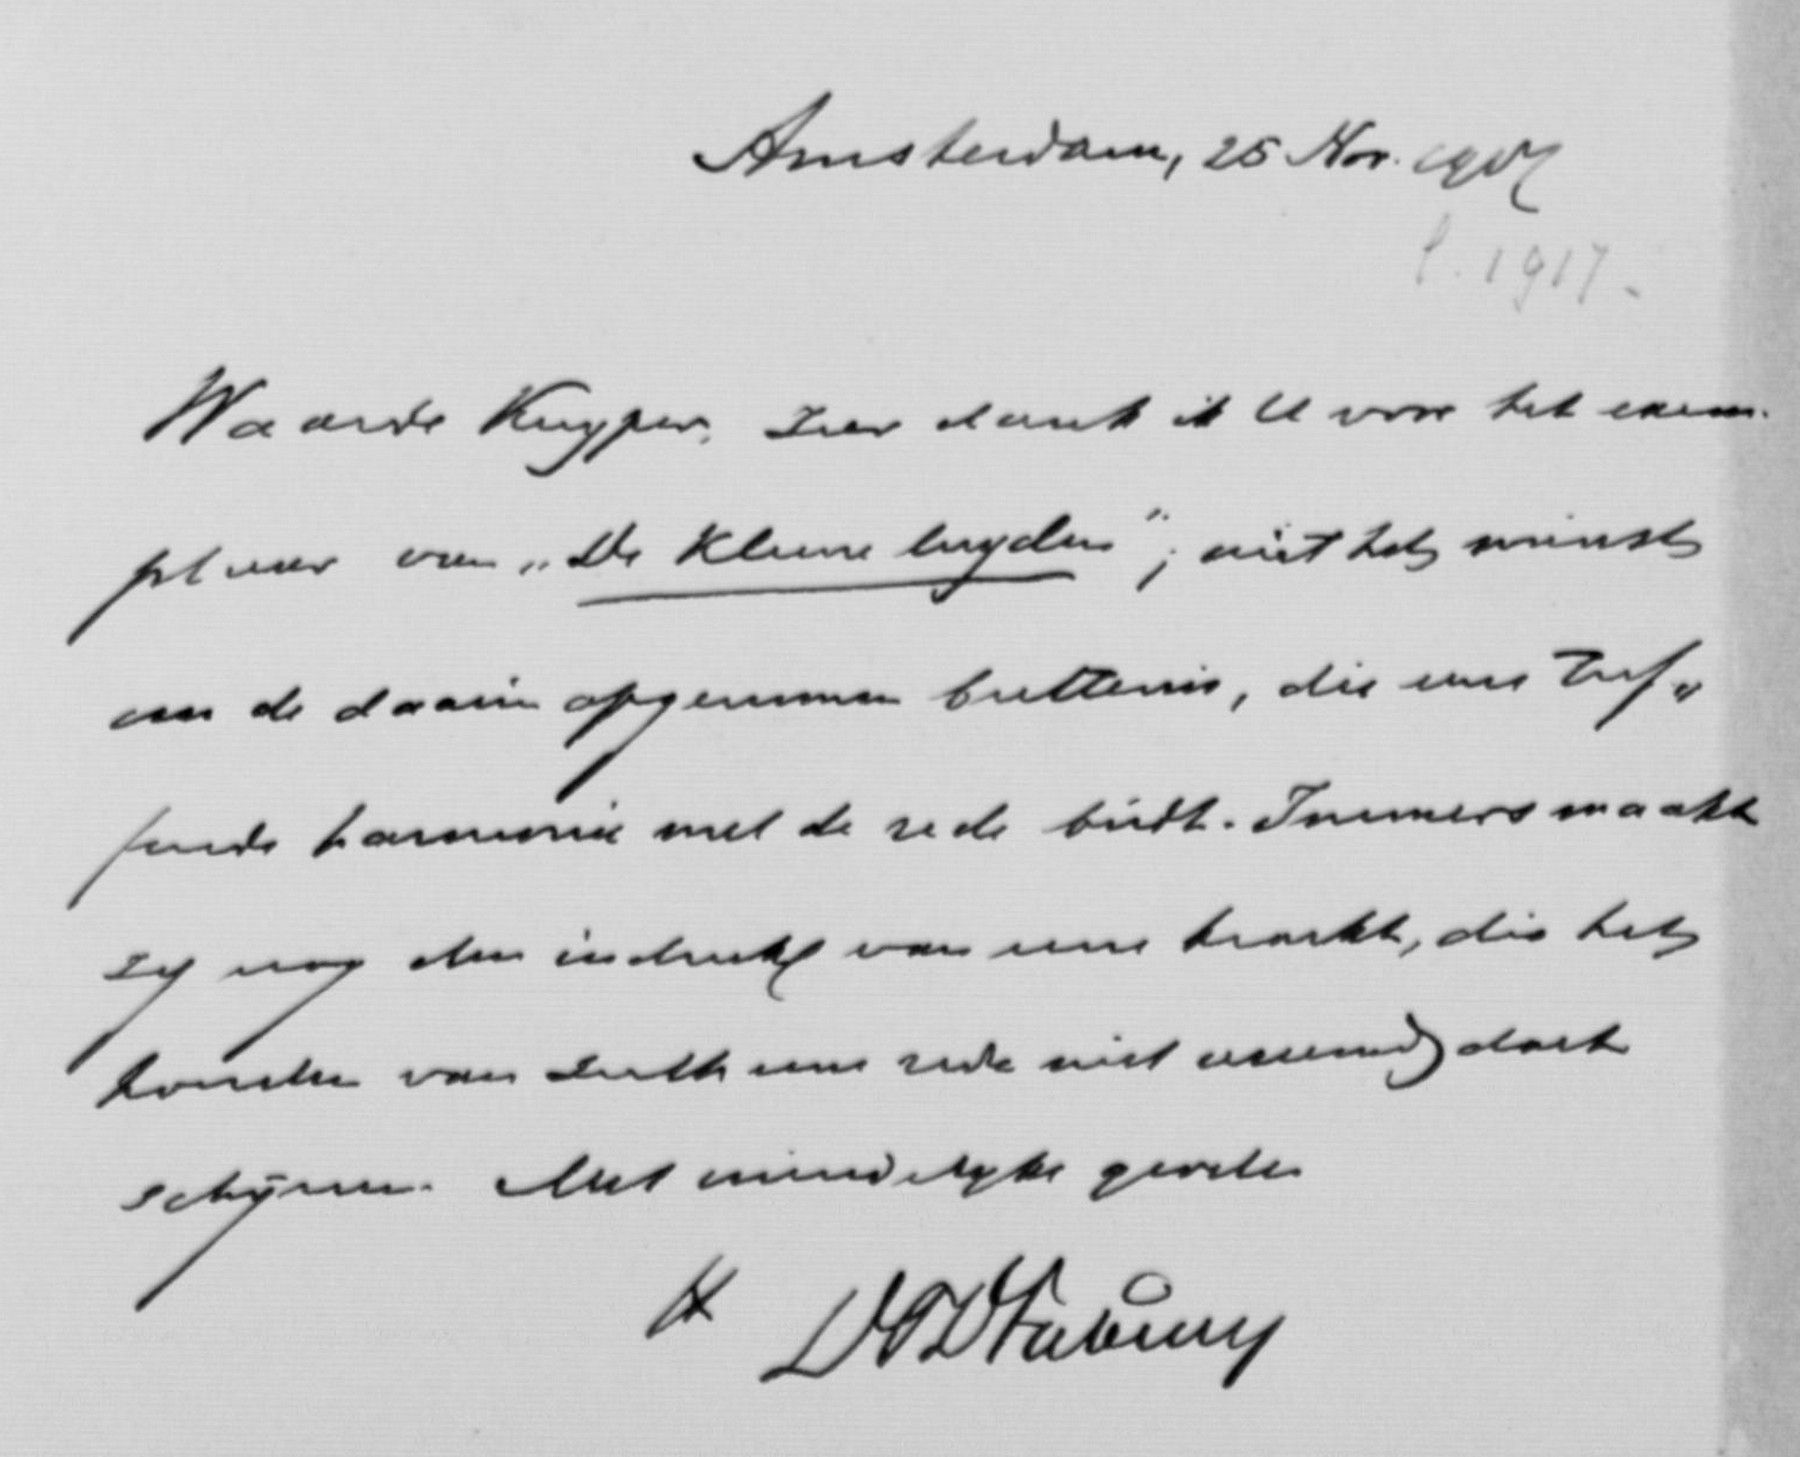 Amsterdam, 25 Nov. 1917
1917.
Waarde Kuyper, Zeer dank ik U voor het exem-
plaar van „De kleine luyden"; niet het minst
om de daarin opgenomen beeltenis, die eene tref„
fende harmonie met de rede biedt. Immers maakt
zij nog den indruk van eene kracht, die het
houden van zulk eene rede niet vreemd doet
schijnen. Met vriendelijke groeten
tt
DPDFabius